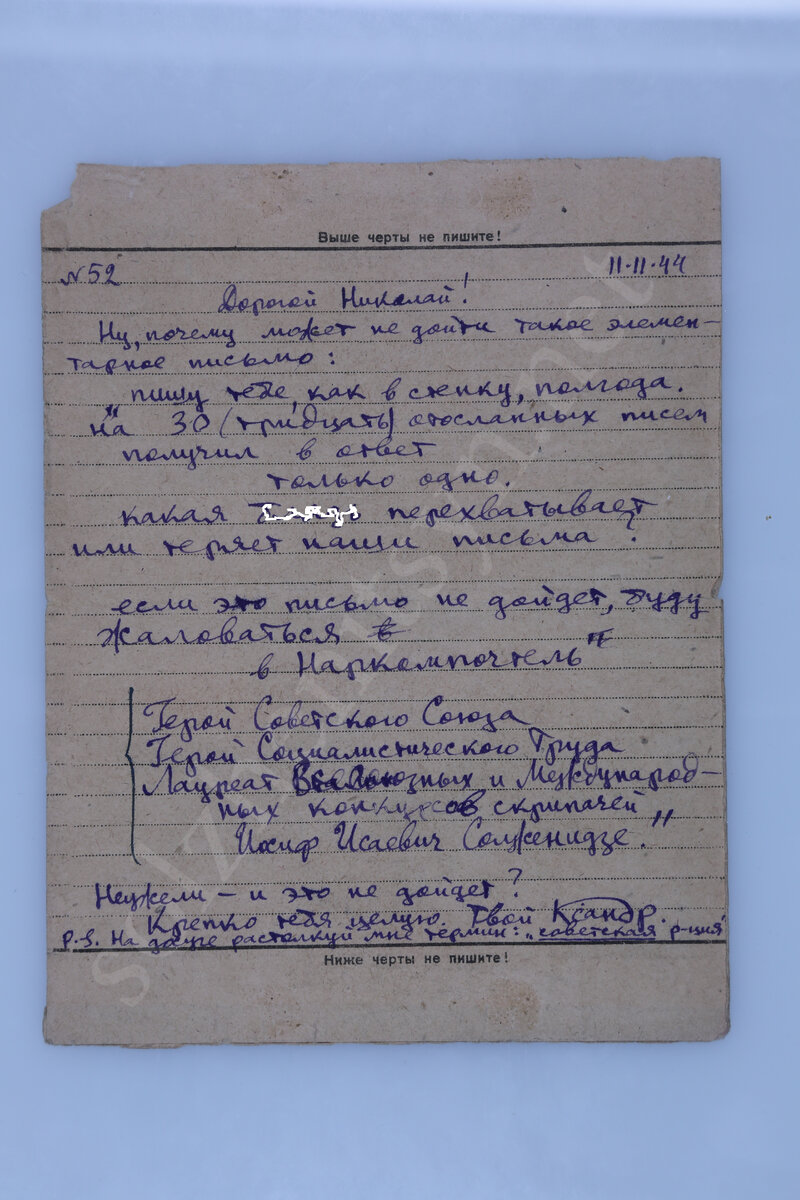 Выше черты не пишите!
N 52
11-11-44
Дорогой Николай!
Ну, почему может не дойти такое элемен-
тарное письмо:
„пишу тебе, как в стенку, полгода.
на 30 (тридцать) отосланных писем
получил в ответ
только одно.
какая перехватывает
или теряет наши письма?
если это письмо не дойдет, буду
жаловаться в
в Наркомпочтель"
Герой Советского Союза
Герой Социалистического Труда
Лауреат Всесоюзных и Международ-
ных конкурсов скрипачей
Иосиф Исаевич Солженидзе."
Неужели – и это не дойдет?
Крепко тебя целую. Твой Ксандр.
P.-S. На досуге растолкуй мне термин: „советская р-ция"
Ниже черты не пишите!